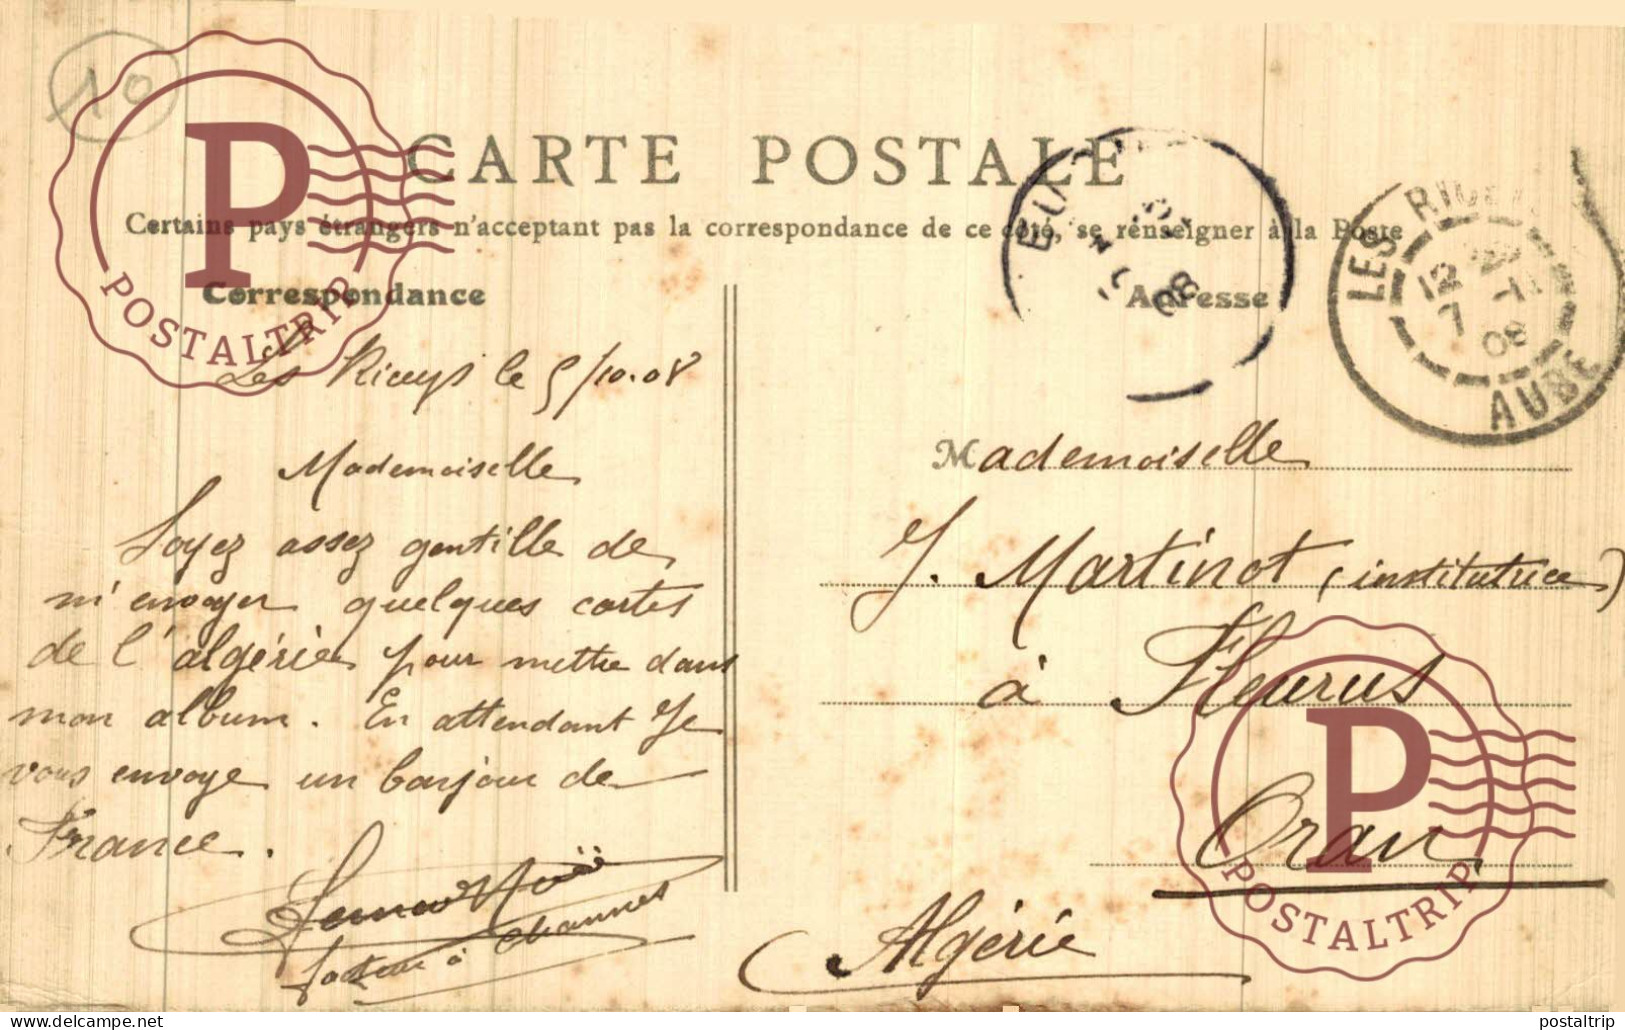 10
CARTE POSTALE
Certains pays étrangers n'acceptant pas la correspondance de ce côté, se renseigner à la Poste
Correspondance
Adresse
LES RICEYS
12
7 -11
08
AUBE
08
Les Riceys le 5/10.08
Mademoiselle
Soyez assez gentille de
m'envoyer quelques cartes
de l'algérie pour mettre dans
mon album. En attendant Je
vous envoye un bonjour de
France.
facteur à Channes
Mademoiselle
J. Martinot (institutrice)
à Fleurus
Oran
Algérie
P
POSTALTRIP
P
POSTALTRIP
www.delcampe.net
postaltrip
postaltrip